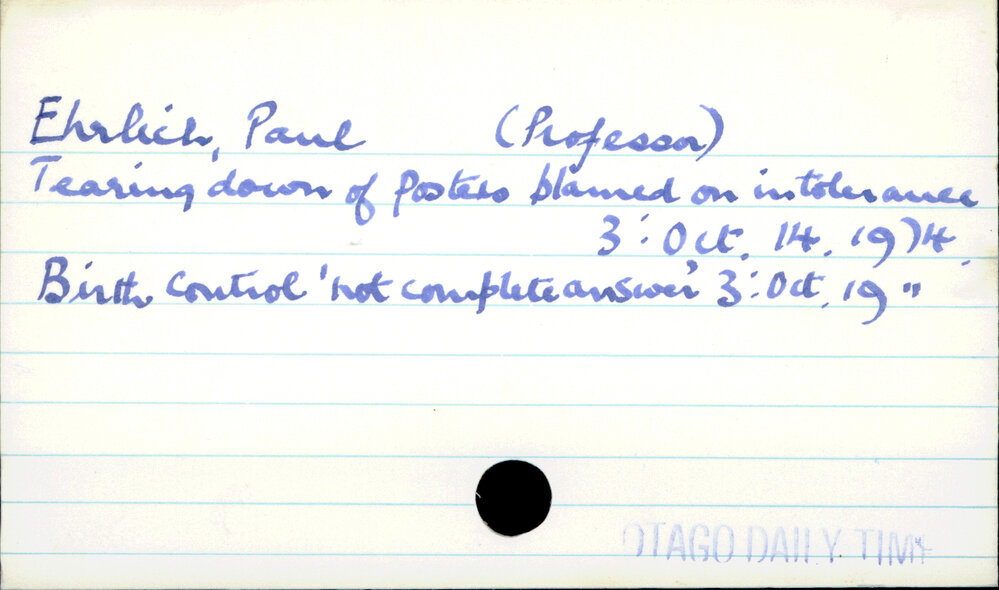 Ehrlich, Paul (Professor)
Tearing down of posters blamed on intolerance
3: Oct. 14. 1974.
Birth control 'not complete answer' 3: Oct. 19 "
OTAGO DAILY TIME